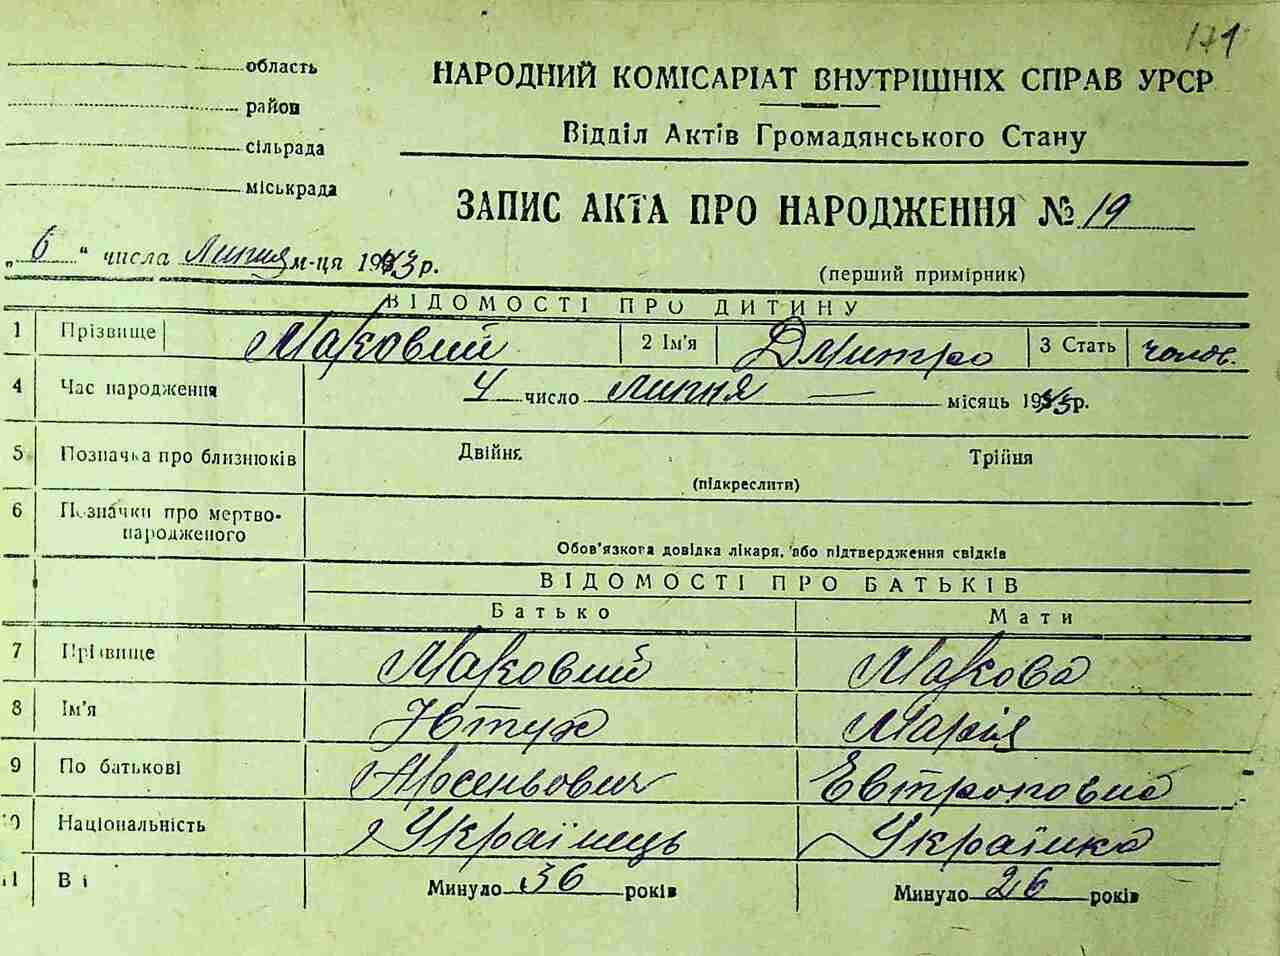 171
область
район
сільрада
міськрада
НАРОДНИЙ КОМІСАРІАТ ВНУТРІШНІХ СПРАВ УРСР
Відділ Актів Громадянського Стану
ЗАПИС АКТА ПРО НАРОДЖЕННЯ № 19
„6“ числа Липня м-ця 1943 р.
(перший примірник)
ВІДОМОСТІ ПРО ДИТИНУ
1 Прізвище Маковий 2 Ім'я Дмитро 3 Стать чолов.
4 Час народження 4 число липня — місяць 1943 р.
5 Позначка про близнюків Двійня Трійня
(підкреслити)
6 Позначки про мертво-
народженого
Обов'язкова довідка лікаря, або підтвердження свідків
ВІДОМОСТІ ПРО БАТЬКІВ
Батько Мати
7 Прізвище Маковий Макова
8 Ім'я Ютух Марія
9 По батькові Арсеньович Евтроповна
10 Національність Українець Українка
11 Ві Минуло 36 років Минуло 26 років